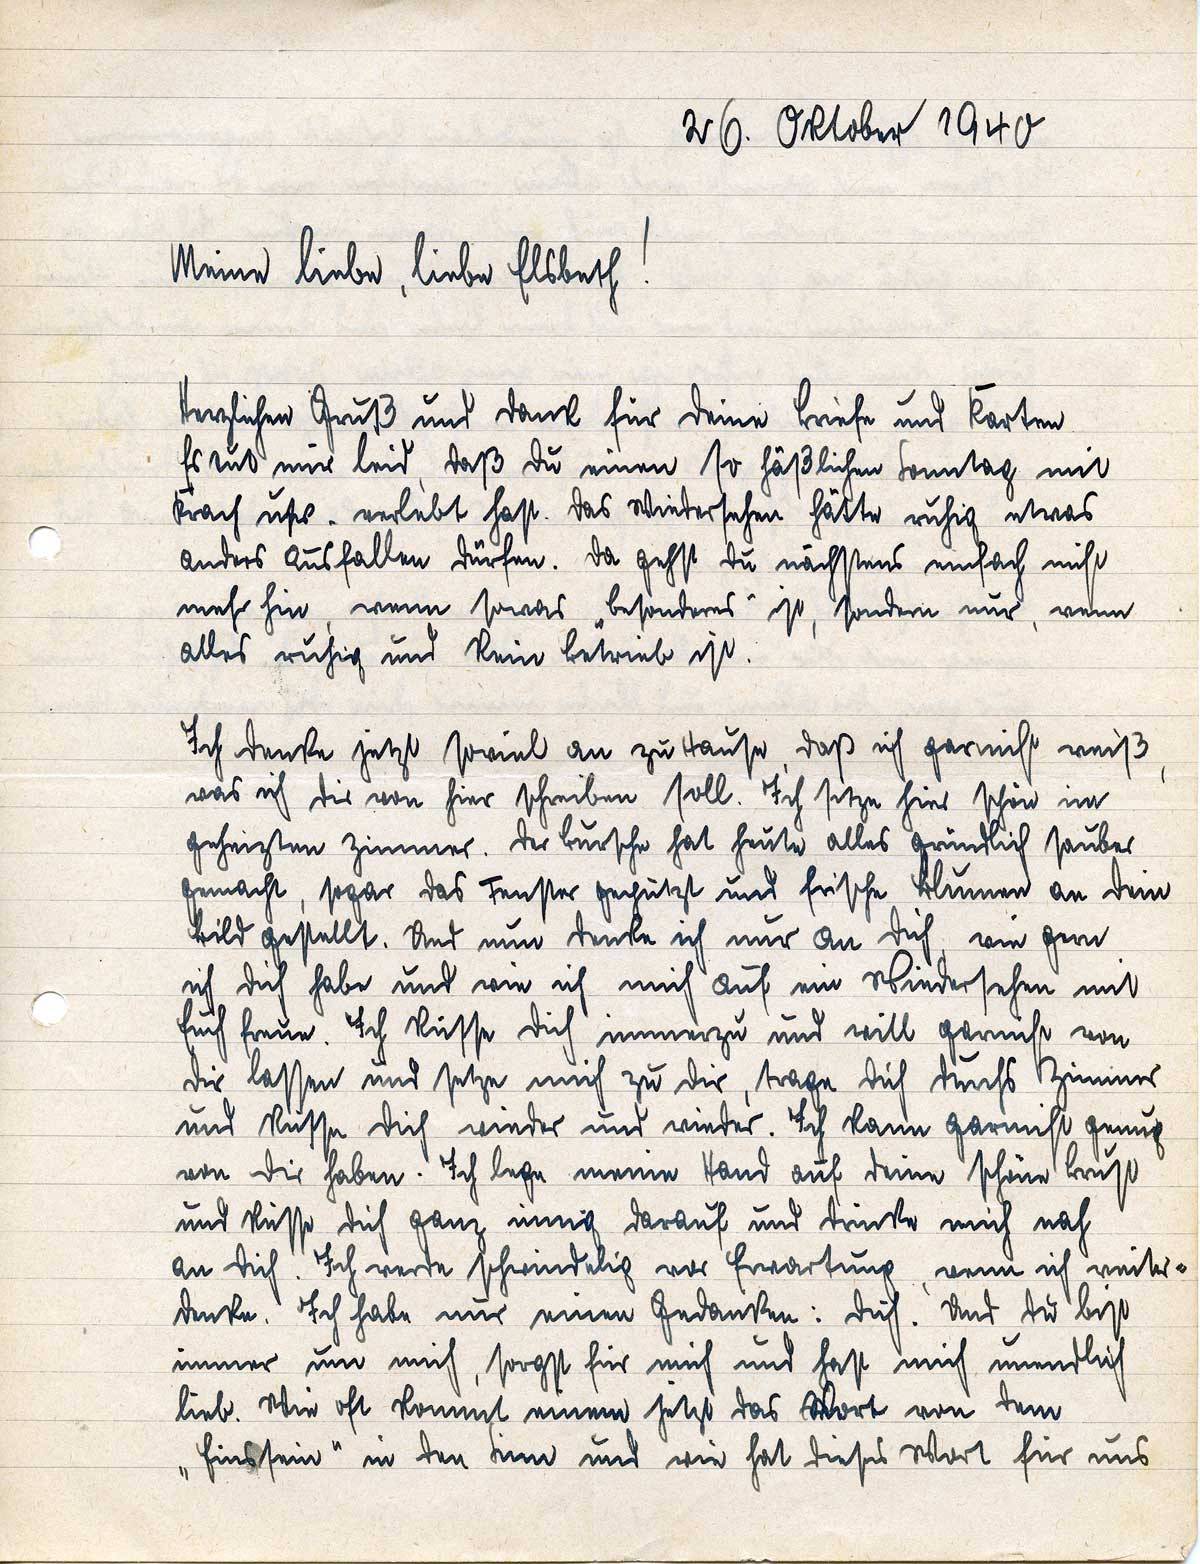 26. Oktober 1940
Meine liebe, liebe Elsbeth!
Herzlichen Gruß und Dank für Deine Briefe und Karten
Es tut mir leid, daß Du einen so häßlichen Sonntag mit
Krach usw. verlebt hast. Das Wiedersehen hätte ruhig etwas
anders ausfallen dürfen. Da gehst Du nächstens einfach nicht
mehr hin, wenn sowas „besonderes" ist, sondern nur, wenn
alles ruhig und kein Betrieb ist.
Ich denke jetzt soviel an zu Hause, daß ich garnicht weiß,
was ich Dir von hier schreiben soll. Ich sitze hier schön im
geheizten Zimmer. Der Bursche hat heute alles gründlich sauber
gemacht, sogar das Fenster geputzt und frische Blumen an Dein
Bild gestellt. Und nun denke ich nur an Dich, wie gern
ich Dich habe und wie ich mich auf ein Wiedersehen mit
Euch freue. Ich küsse Dich immerzu und will garnicht von
Dir lassen und setze mich zu Dir, trage Dich durchs Zimmer
und küsse Dich wieder und wieder. Ich kann garnicht genug
von Dir haben. Ich lege meine Hand auf Deine schöne Brust
und küsse Dich ganz innig darauf und drücke mich nah
an Dich. Ich werde schwindelig vor Erwartung, wenn ich weiter-
denke. Ich habe nur einen Gedanken: Dich. Und Du bist
immer um mich, sorgst für mich und hast mich unendlich
lieb. Wie oft kommt einem jetzt das Wort von dem
„Einssein" in den Sinn und wie hat dieses Wort für uns